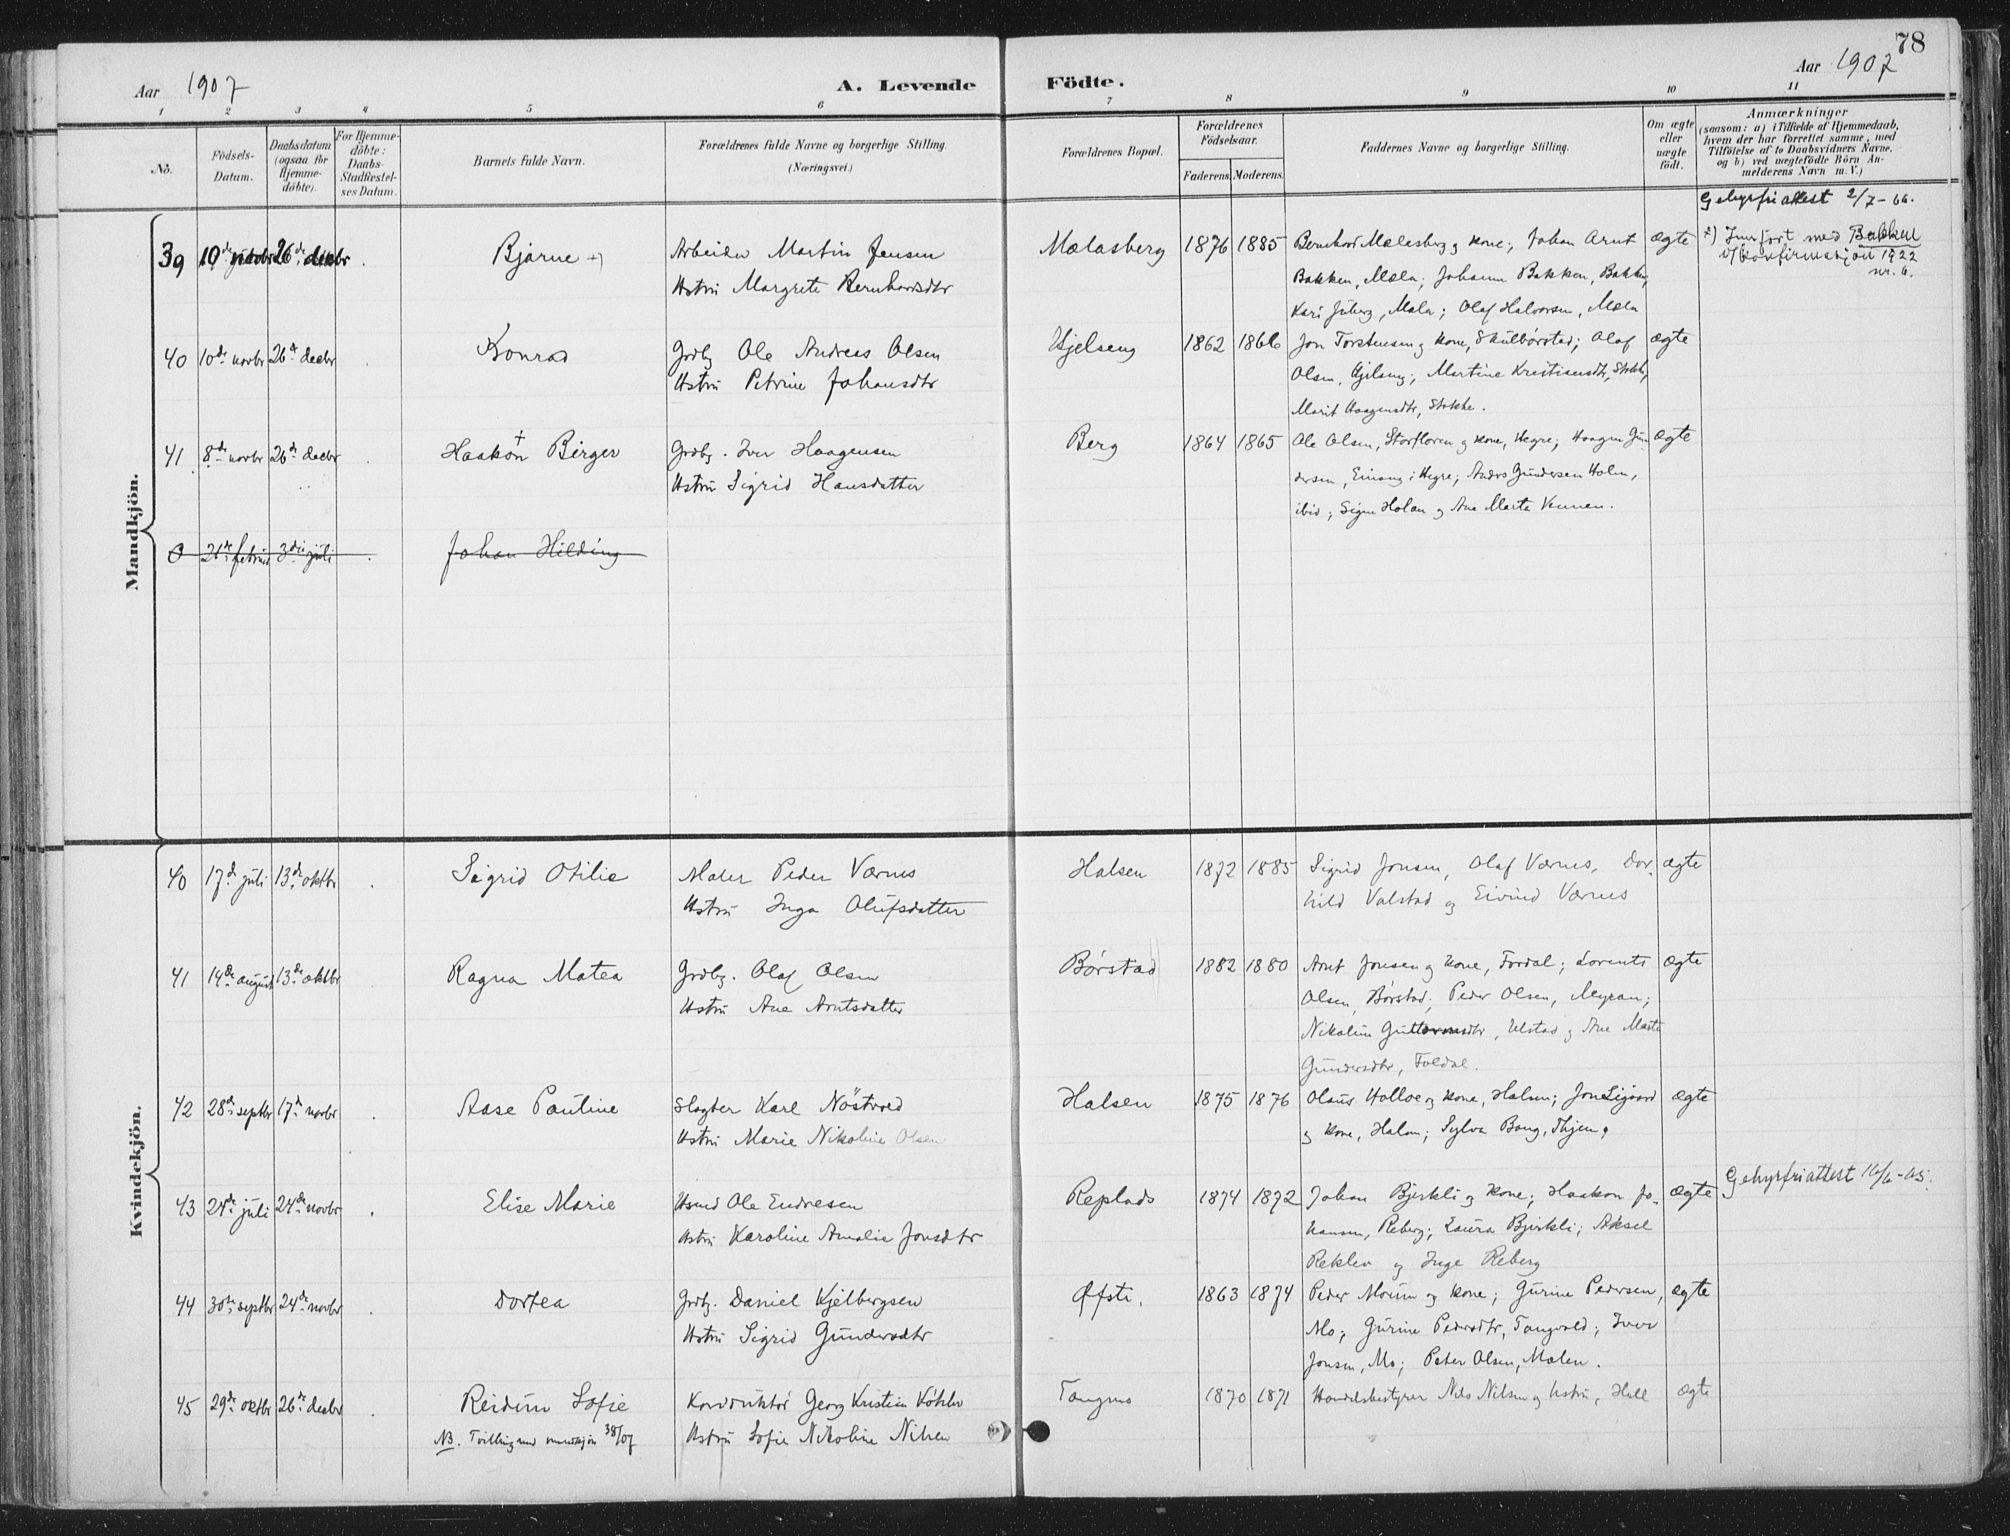 78
Aar 1907
A. Levende Födte.
Aar 1907
1 2 3 4 5 6 7 8 9 10 11
No.
Födsels-Datum.
Daabsdatum (ogsaa for Hjemme-döbte).
For Hjemme-döbte: Daabs-Stadfæstel-ses Datum.
Barnets fulde Navn.
Forældrenes fulde Navne og borgerlige Stilling.
(Næringsvei.)
Forældrenes Bopæl.
Forældrenes Födselsaar.
Faderens. Moderens.
Faddernes Navne og borgerlige Stilling.
Om ægte eller uægte födt.
Anmærkninger
(saasom: a) i Tilfælde af Hjemmedaab,
hvem der har forrettet samme, med
Tilföielse af to Daabsvidners Navne.
og b) ved uægtefödte Börn An-
melderens Navn m. V.)
Mandkjön.
Gehyrfriattest 2/7-66.
39 10de novbr 26de decbr Bjarne +) Arbeider Martin Jensen Mælasberg 1876 1885 Bernhard Mælasberg og kone; Johan Arnt ægte +) Innført med Bakken
Hstru Margrete Bernhardsdtr Bakken, Mæla; Johanna Bakken, Bakken, v/konfirmasjon 1922
nr. 6.
Kari Juberg, Mæla; Olaf Halvorsen, Mæla
40 10de novbr 26de decbr Konrad Grdbr. Ole Andreas Olsen Hjelseng 1862 1866 Jon Torstensen og kone, Skulbørstad; Olaf ægte
Hstru Petrine Johansdtr Olsen, Hjelseng; Martine Kristiansdtr, Stokke,
Marit Haagensdtr, Stokke.
41 8de novbr 26de decbr Haakon Birger Grdbr. Iver Haagensen Berg 1864 1865 Ole Olsen, Storfloren og kone, Hegre; Haagen Gun- ægte
Hstru Sigrid Hansdatter dersen, Einang i Hegre; Anders Gundersen Holan,
ibid; Signe Holan og Ane Marta Vennen.
0 21de februar 3die juli Johan Hilding
Kvindekjön.
40 17de juli 13de oktbr Sigrid Otilie Maler Peder Værnes Halsen 1872 1885 Sigrid Jonsen, Olaf Værnes, Bor- ægte
Hstru Inga Olufsdatter hild Valstad og Eivind Værnes
41 14de august 13de oktbr Ragna Matea Grdbr. Olaf Olsen Børstad 1882 1880 Arnt Jonsen og kone, Fordal; Lorents ægte
Hstru Ane Arntsdatter Olsen, Børstad; Peder Olsen, Myran;
Nikoline Guttormsdtr, Ulstad og Ane Marta
Gundersdtr, Foldal.
42 28de septbr 17de novbr Aase Pauline Slagter Karl Nöstvold Halsen 1875 1876 Olaus Holloe og kone, Halsen; Jon Sigaard ægte
Hstru Marie Nikoline Olsen og kone, Halsen; Sylva Bang, Thjem.
43 24de juli 24de novbr Elise Marie Hsmd Ole Endresen Replads 1874 1872 Johan Bjerkli og kone; Haakon Jo- ægte Gehyrfriattest 16/6-65.
Hstru Karoline Amalie Jonsdtr hansen, Reberg; Laura Bjerkli; Aksel
Reklev og Inge Reberg
44 30te septbr 24de novbr Dortea Grdbr. Daniel Kjelbergsen Øfsti. 1863 1874 Peder Moum og kone; Gurine Pedersen, ægte
Hstru Sigrid Gundersdtr Mo; Gurine Pedersdtr, Tangvold; Iver
Jonsen, Mo; Peter Olsen, Mælen.
45 29de oktbr 26de decbr Reidun Sofie Konduktør Georg Kristian Køhler Tangmo 1870 1871 Handelsbestyrer Nils Nilsen og hstru, Hell ægte
NB. Tvilling med mandkjøn 38/07 Hstru Sofie Nikoline Nilsen